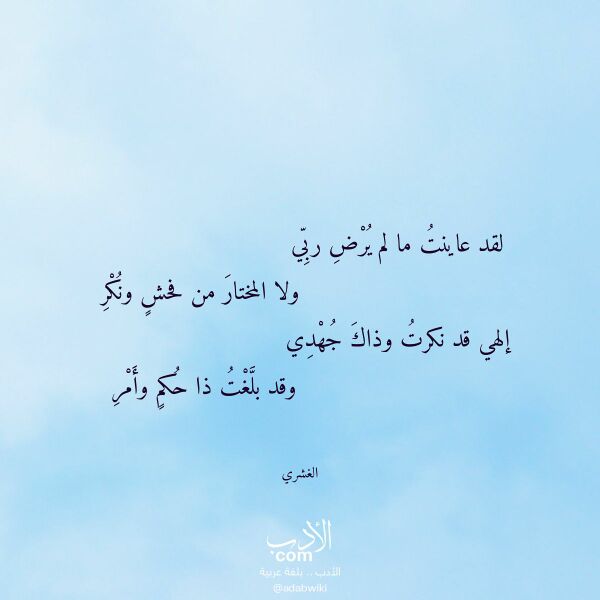 لقد عاينتُ ما لم يُرْضِ ربِّي
ولا المختارَ من فحشٍ ونُكْرِ
إلهي قد نكرتُ وذاكَ جُهْدِي
وقد بلَّغْتُ ذا حُكمٍ وأَمْرِ
الغشري
الأدب
.com
الأدب .. بلغة عربية
@adabwiki